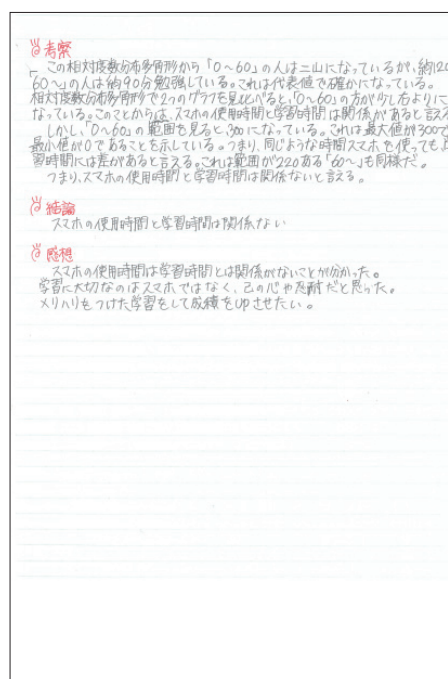 考察
この相対度数分布多角形から「0～60」の人は二山になっているが、約120
60～」の人は約90分勉強している。これは代表値で確かになっている。
相対度数分布多角形で2つのグラフを見比べると、「0～60」の方が少し右よりに
なっている。このことからは、スマホの使用時間と学習時間は関係があると言え
しかし、「0～60」の範囲を見ると、300になっている。これは最大値が300で
最小値が0であることを示している。つまり、同じような時間スマホを使っても
習時間には差があると言える。これは範囲が220ある「60～」も同様だ。
つまり、スマホの使用時間と学習時間は関係ないと言える。
結論
スマホの使用時間と学習時間は関係ない
感想
スマホの使用時間は学習時間とは関係がないことが分かった。
学習に大切なのはスマホではなく、己の心や忍耐だと思った。
メリハリをつけた学習をして成績をUPさせたい。